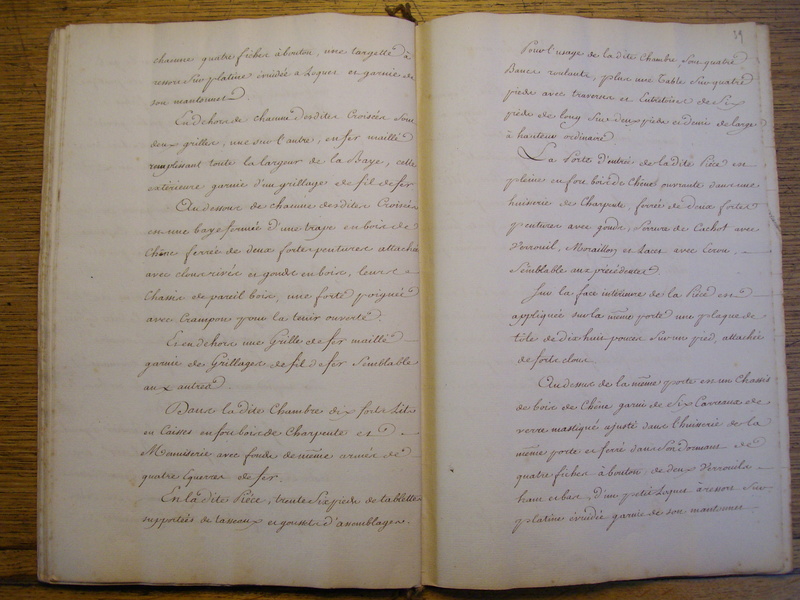 chacune quatre fiches à bouton, une targette à
ressort sur platine évuidée à Loquet et garnie de
son mantonnet
En dehors de chacune desdites Croisées sont
deux grilles, une sur l'autre, en fer maillé
remplissant toute la largeur de la Baye, celle
extérieure garnie d'un grillage de fil de fer
Au dessous de chacune desdites Croisées
est une baye fermée d'une trape en bois de
Chêne ferrée de deux fortes pentures attachées
avec clous rivés et gonds en bois, leurs
Chassis de pareil bois, une forte poignée
avec Crampon pour la tenir ouverte
Et en dehors une Grille de fer maillé
garnie de Grillages de fil de fer Semblable
aux autres
Dans la dite Chambre dix forts Lits
en Caisses en fort bois de Charpente et
Menuiserie avec fonds de même armés de
quatre Equerres de fer.
En la dite Pièce, trente Six pieds de tablettes
supportées de tasseaux et goussets d'assemblages.
39
Pour l'usage de la dite Chambre, sont quatre
Bancs roulants, plus une Table sur quatre
pieds avec traverses et Entretoises de Six
pieds de long sur deux pieds et demie de large
à hauteur ordinaire
La Porte d'entrée de la dite Pièce est
pleine en fort bois de Chêne ouvrante dans une
huisserie de Charpente, ferrée de deux fortes
pentures avec gonds, Serrure de Cachot avec
Verrouil, Moraillon et Lacet avec Ecrou,
Semblable aux précédentes
Sur la face intérieure de la Pièce est
appliquée sur la même porte une plaque de
tôle de dix huit pouces sur un pied, attachée
de forts clous
Au dessus de la même porte est un Chassis
de bois de Chêne garni de Six Carreaux de
verre mastiqué ajusté dans l'huisserie de la
même porte et ferré dans son dormant de
quatre fiches à bouton, de deux Verrouils
haut et bas, d'un petit Loquet à ressort sur
platine évuidée garnie de son mantonnet